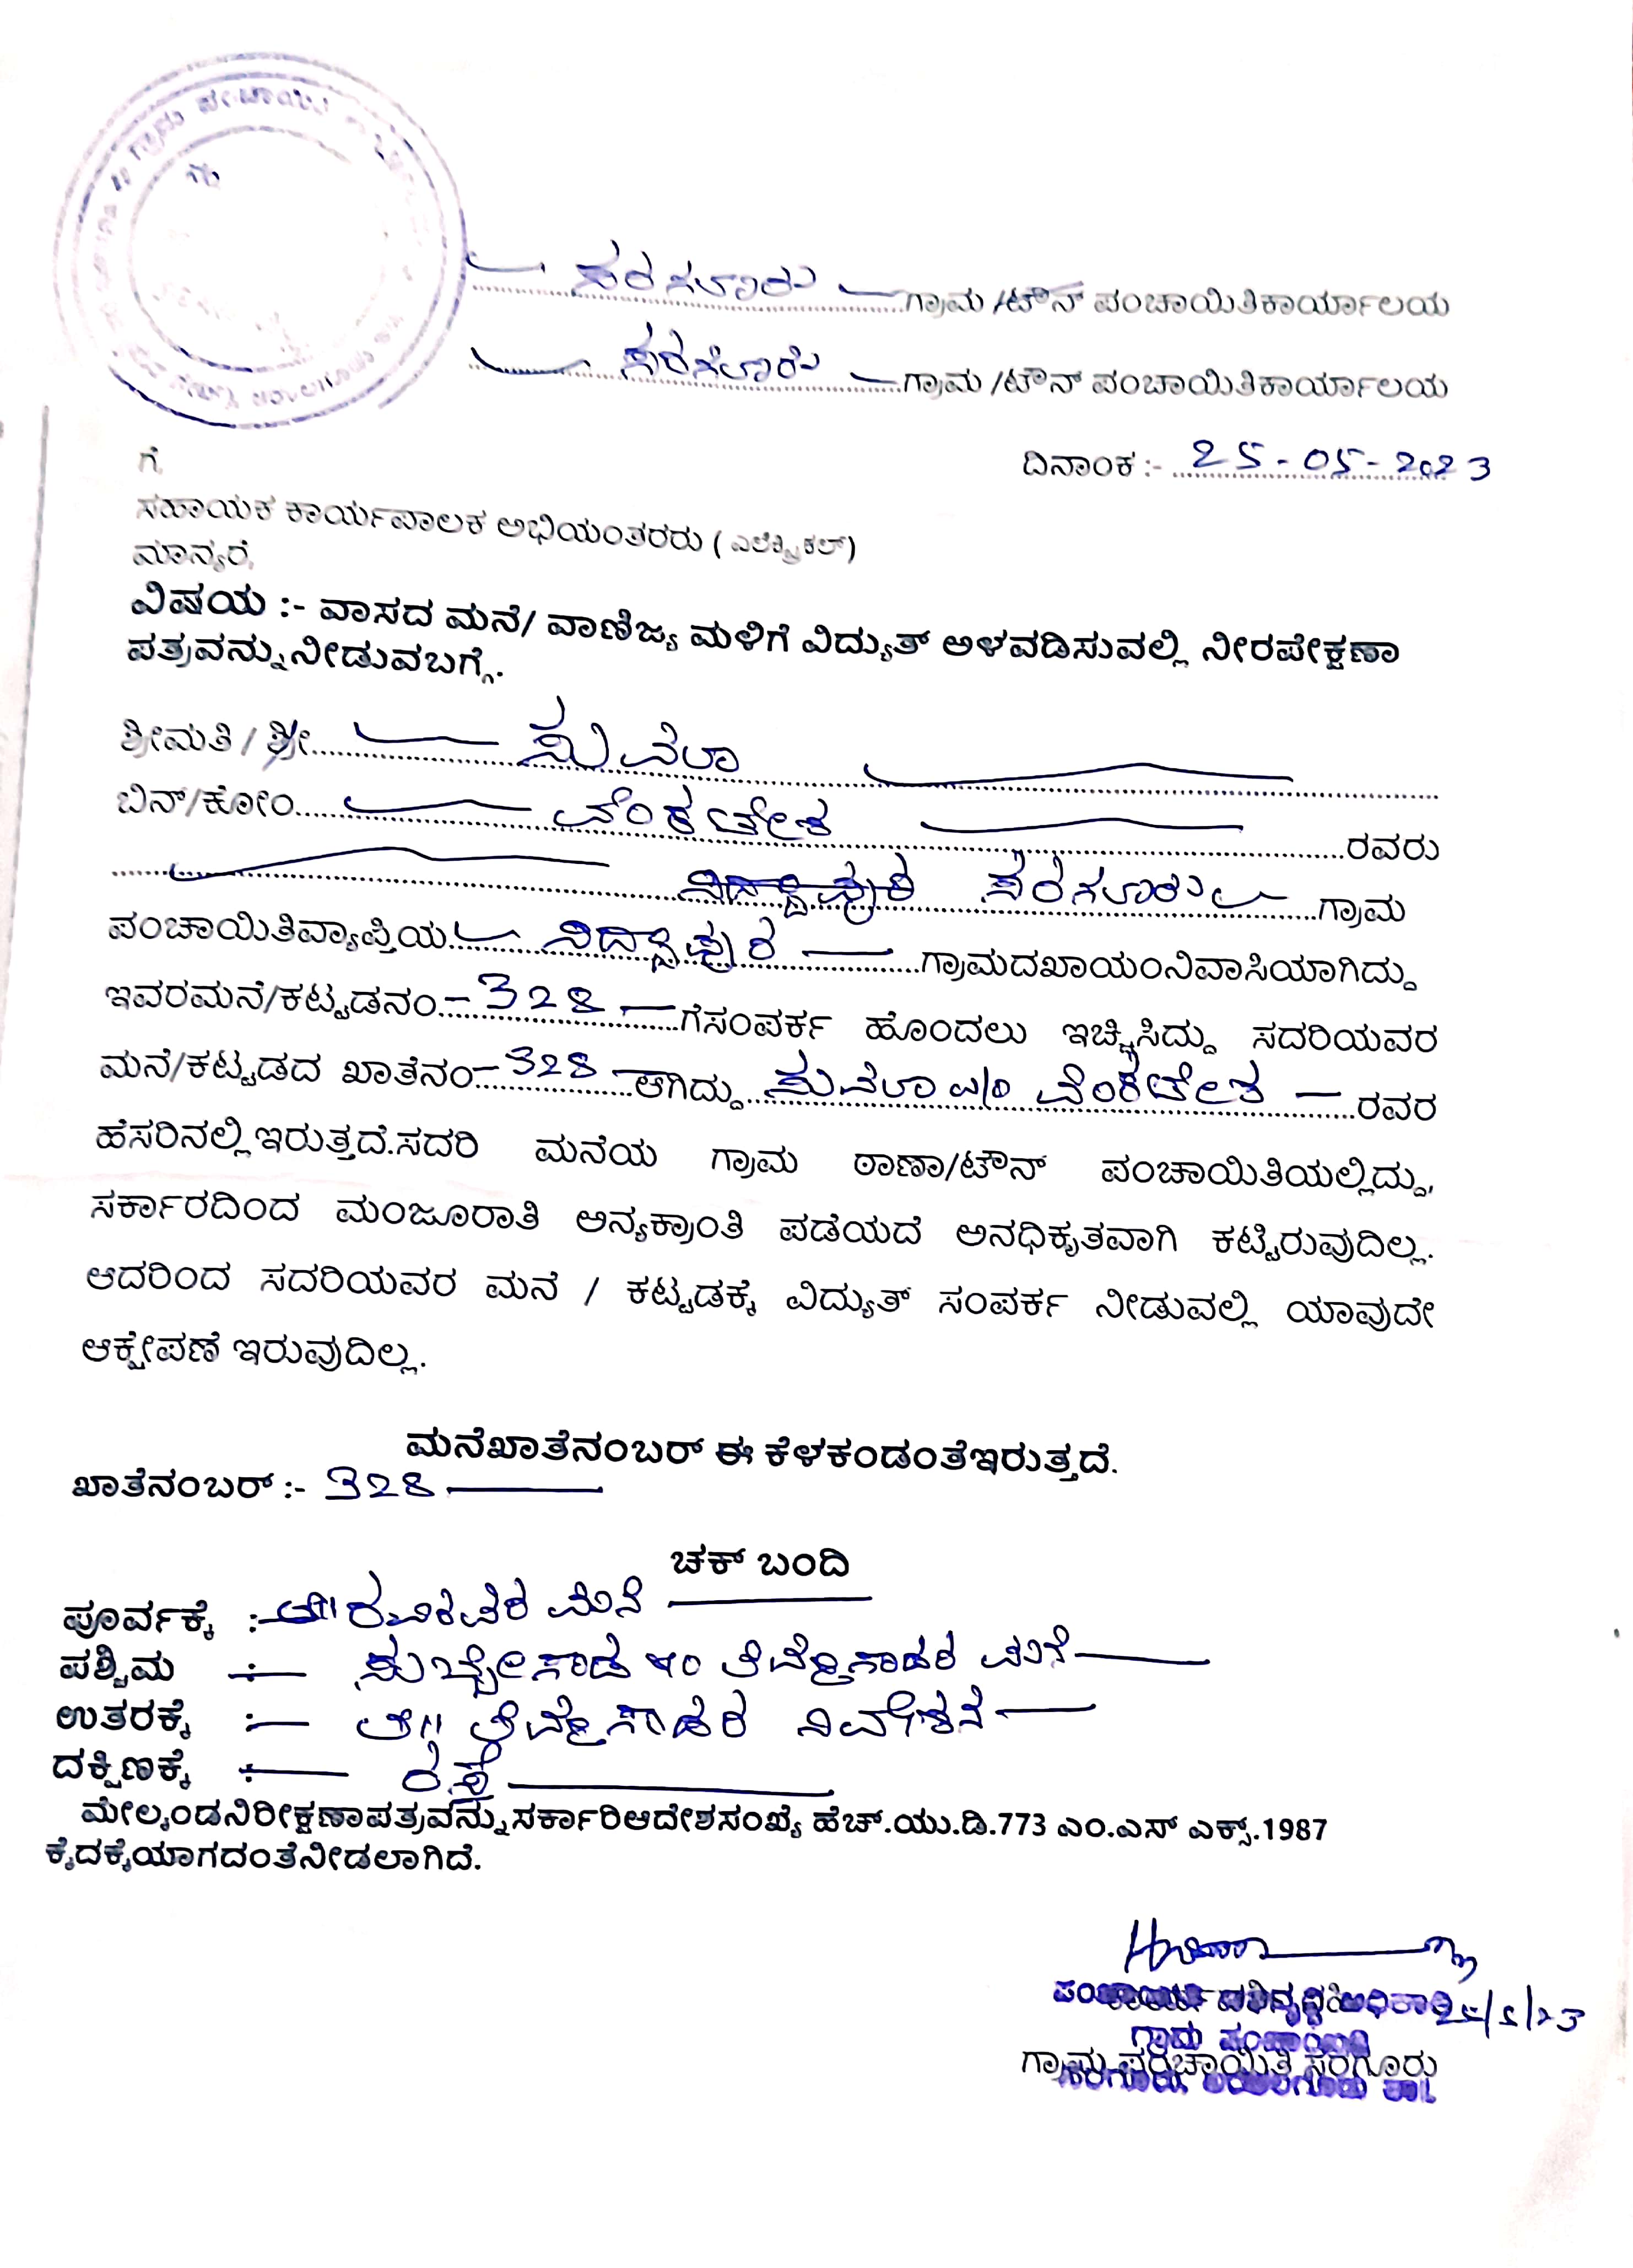 ಗ್ರಾಮ ಪಂಚಾಯಿತಿ
ಸರಗೂರು ಗ್ರಾಮ /ಟೌನ್ ಪಂಚಾಯಿತಿಕಾರ್ಯಾಲಯ
ಸರಗೂರು ಗ್ರಾಮ /ಟೌನ್ ಪಂಚಾಯಿತಿಕಾರ್ಯಾಲಯ
ಗೆ, ದಿನಾಂಕ :- 25-05-2023
ಸಹಾಯಕ ಕಾರ್ಯಪಾಲಕ ಅಭಿಯಂತರರು ( ಎಲೆಕ್ಟ್ರಿಕಲ್)
ಮಾನ್ಯರೆ,
ವಿಷಯ :- ವಾಸದ ಮನೆ/ ವಾಣಿಜ್ಯ ಮಳಿಗೆ ವಿದ್ಯುತ್ ಅಳವಡಿಸುವಲ್ಲಿ ನೀರಪೇಕ್ಷಣಾ
ಪತ್ರವನ್ನು ನೀಡುವಬಗ್ಗೆ.
ಶ್ರೀಮತಿ / ಶ್ರೀ
ಬಿನ್/ಕೋಂ ವೆಂಕಟೇಶ ರವರು
ಸರಗೂರು ಗ್ರಾಮ
ಪಂಚಾಯಿತಿವ್ಯಾಪ್ತಿಯ ಗ್ರಾಮದಖಾಯಂನಿವಾಸಿಯಾಗಿದ್ದು
ಇವರಮನೆ/ಕಟ್ಟಡನಂ 328 ಗೆಸಂಪರ್ಕ ಹೊಂದಲು ಇಚ್ಛಿಸಿದ್ದು ಸದರಿಯವರ
ಮನೆ/ಕಟ್ಟಡದ ಖಾತೆನಂ 328 ಆಗಿದ್ದು ವೆಂಕಟೇಶ ರವರ
ಹೆಸರಿನಲ್ಲಿ ಇರುತ್ತದೆ.ಸದರಿ ಮನೆಯ ಗ್ರಾಮ ಠಾಣಾ/ಟೌನ್ ಪಂಚಾಯಿತಿಯಲ್ಲಿದ್ದು,
ಸರ್ಕಾರದಿಂದ ಮಂಜೂರಾತಿ ಅನ್ಯಕ್ರಾಂತಿ ಪಡೆಯದೆ ಅನಧಿಕೃತವಾಗಿ ಕಟ್ಟಿರುವುದಿಲ್ಲ.
ಆದರಿಂದ ಸದರಿಯವರ ಮನೆ / ಕಟ್ಟಡಕ್ಕೆ ವಿದ್ಯುತ್ ಸಂಪರ್ಕ ನೀಡುವಲ್ಲಿ ಯಾವುದೇ
ಆಕ್ಷೇಪಣೆ ಇರುವುದಿಲ್ಲ.
ಮನೆಖಾತೆನಂಬರ್ ಈ ಕೆಳಕಂಡಂತೆಇರುತ್ತದೆ.
ಖಾತೆನಂಬರ್ :- 328
ಚಕ್ ಬಂದಿ
ಪೂರ್ವಕ್ಕೆ : ಮನೆ
ಪಶ್ಚಿಮ : ಮನೆ
ಉತರಕ್ಕೆ : ನಿವೇಶನ
ದಕ್ಷಿಣಕ್ಕೆ : ರಸ್ತೆ
ಮೇಲ್ಕಂಡನಿರೀಕ್ಷಣಾಪತ್ರವನ್ನು ಸರ್ಕಾರಿಆದೇಶಸಂಖ್ಯೆ ಹೆಚ್.ಯು.ಡಿ.773 ಎಂ.ಎಸ್ ಎಕ್ಸ್.1987
ಕ್ಕೆದಕ್ಕೆಯಾಗದಂತೆನೀಡಲಾಗಿದೆ.
ಪಂಚಾಯಿತಿ ಅಭಿವೃದ್ಧಿ ಅಧಿಕಾರಿ 25/5/23
ಗ್ರಾಮ ಪಂಚಾಯಿತಿ
ಗ್ರಾಮ ಪಂಚಾಯಿತಿ ಸರಗೂರು